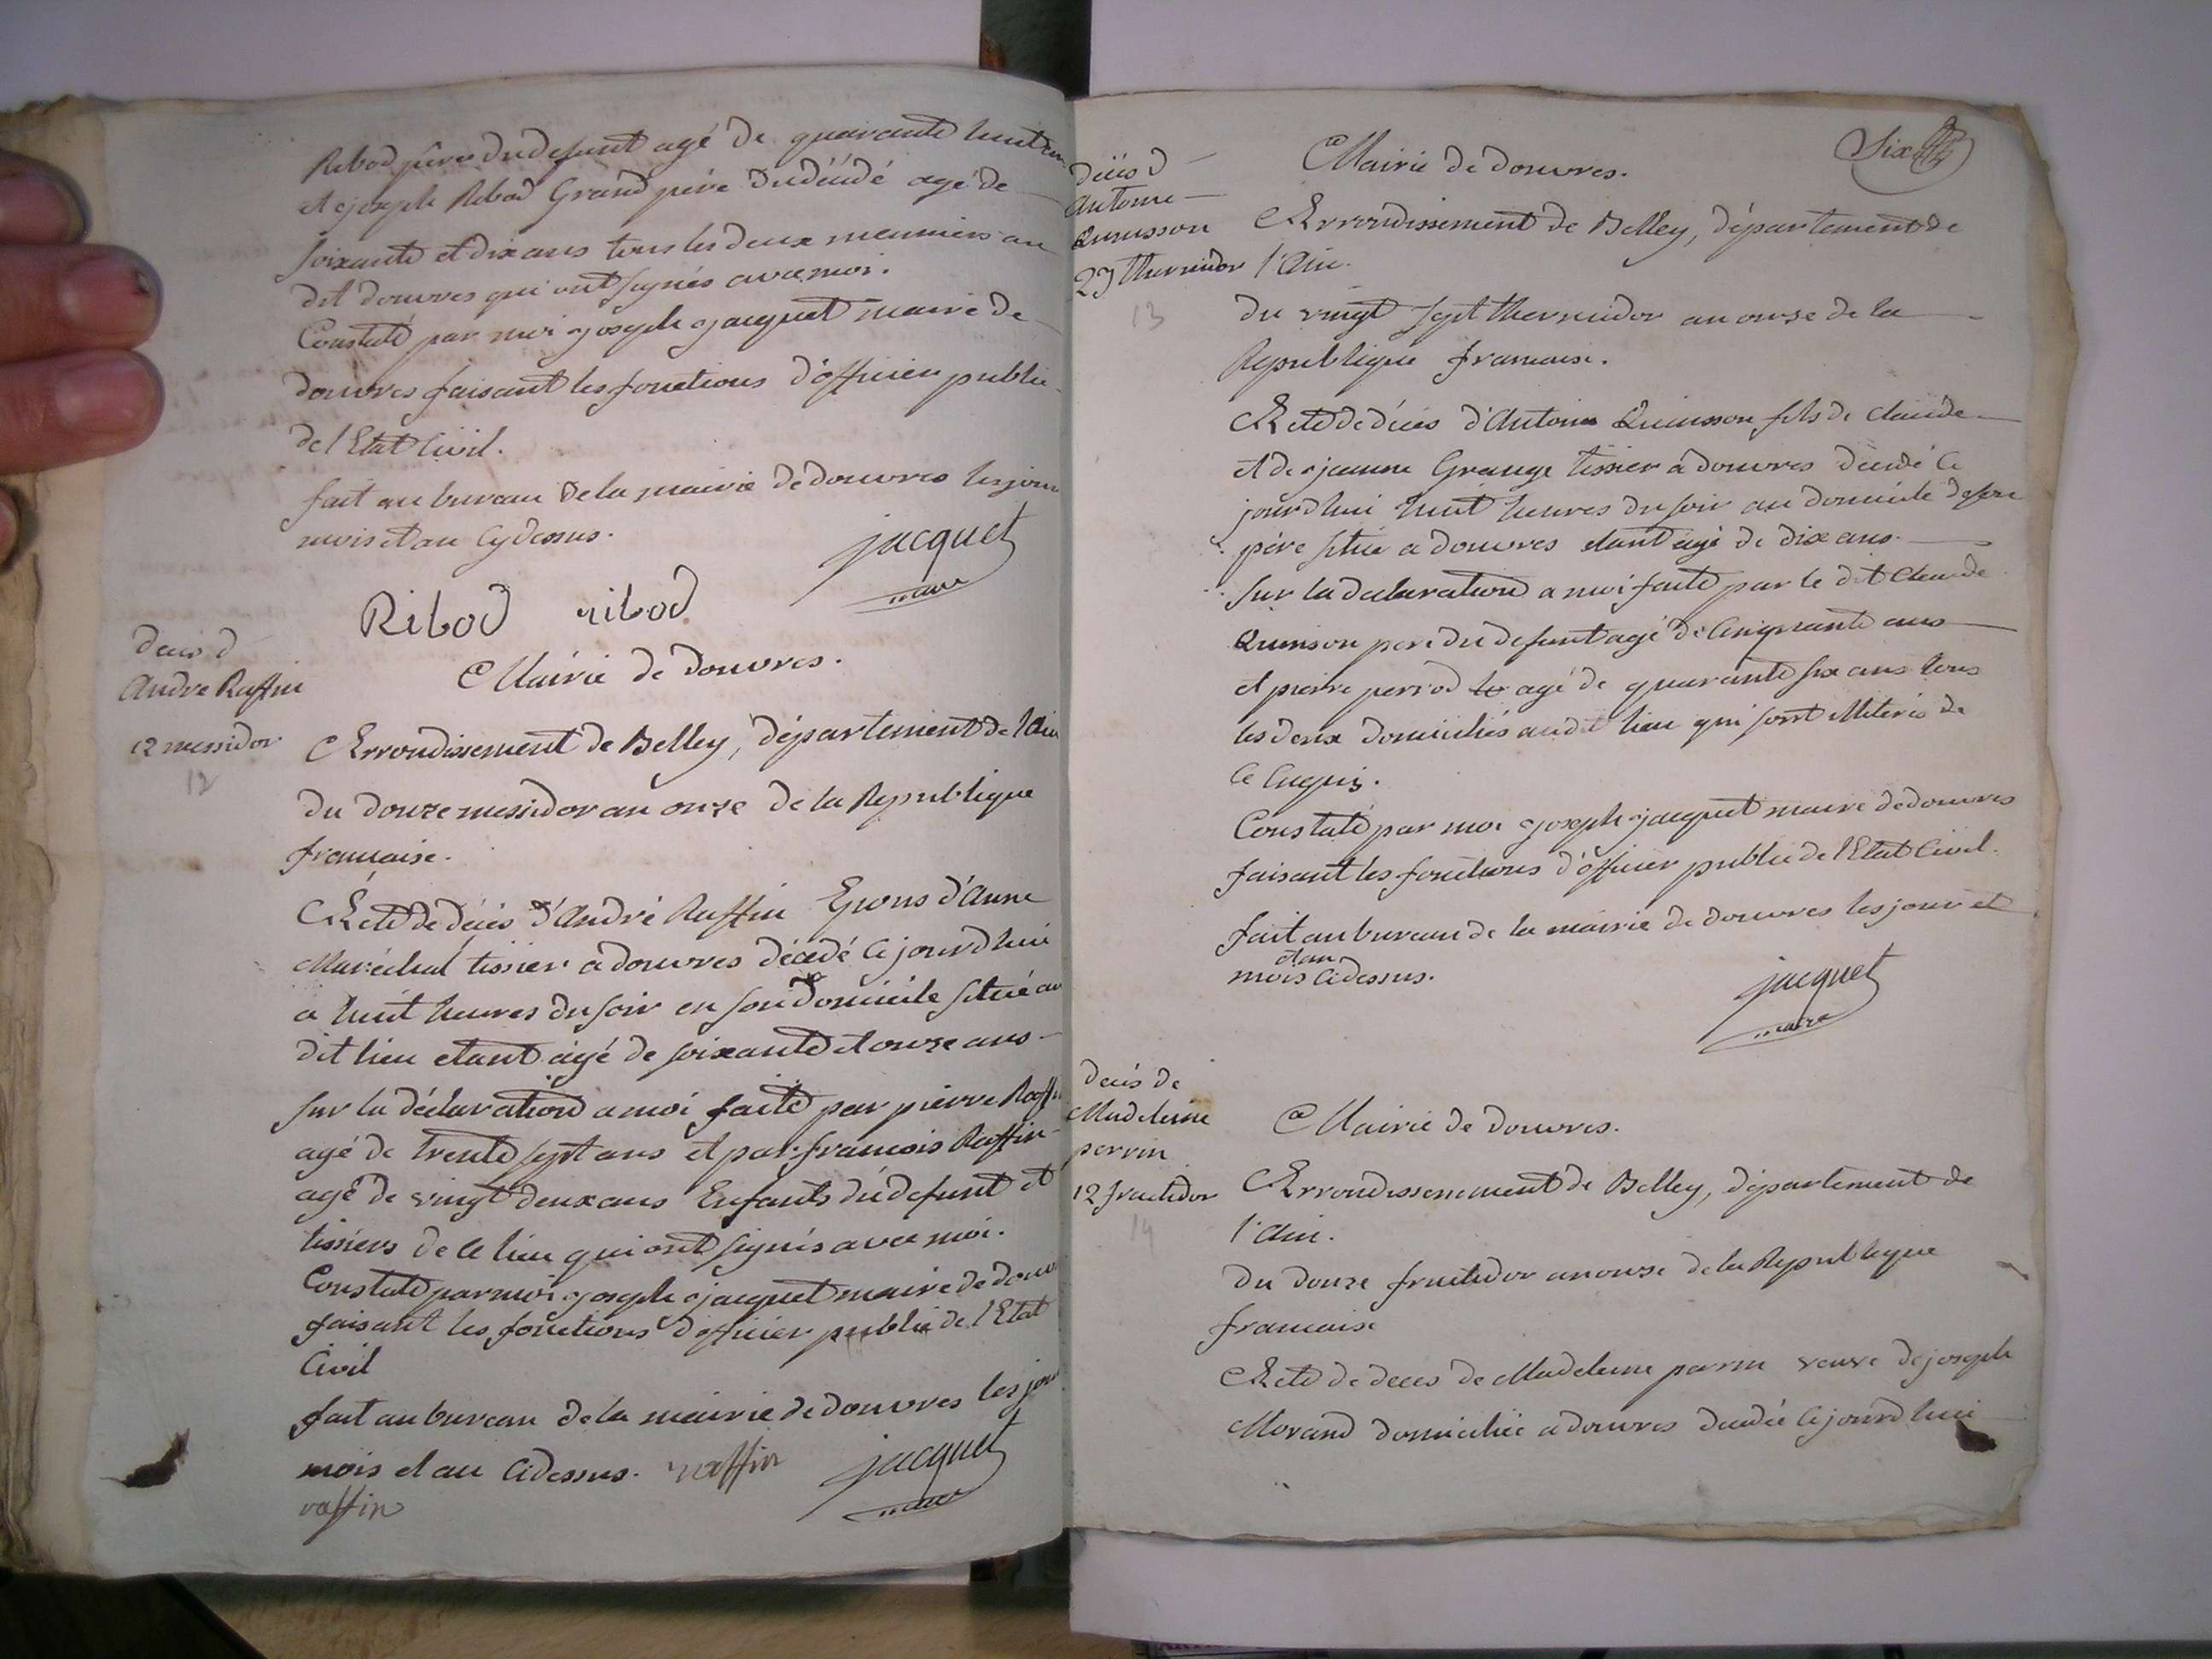 Ribod père du defunt agé de quarante huit ans
et joseph Ribod Grand père du décédé agé de
soixante et dix ans tous les deux meuniers au
dit douvres qui ont signés avec moi.
Constaté par moi joseph jacquet maire de
douvres faisant les fonctions d'officier public
de l'Etat Civil.
fait au bureau de la mairie de douvres les jour
mois et an Cy dessus.
jacquet
maire
Ribod ribod
deces d
André Raffin
12 messidor
12
Mairie de douvres.
Arrondissement de Belley, département de l'Ain
du douze messidor an onze de la Republique
francaise.
Acte de décés d'André Raffin Epous d'Anne
Maréchal tissier a douvres décédé Ce jourd'hui
a huit heures du soir en son domicile situé au
dit lieu etant agé de soixante et onze ans
sur la déclaration a moi faite par pierre Raffin
agé de trente sept ans et par francois Raffin
agé de vingt deux ans Enfants du defunt et
tissiers de ce lieu qui ont signés avec moi.
Constaté par moi joseph jacquet maire de douv
faisant les fonctions d'officier public de l'Etat
Civil
fait au bureau de la mairie de douvres les jour
mois et an Cidessus. raffin
raffin
jacquet
maire
Six
décés d
Antoine
Quinsson
27 thermidor
13
Mairie de douvres.
Arrondissement de Belley, département de
l'Ain.
du vingt sept thermidor an onze de la
Republique francaise.
Acte de décés d'Antoine Quinsson fils de Claude
et de jeanne Grange tissier à douvres décédé Ce
jourd'hui huit heures du soir au domicile de son
pére situé a douvres etant agé de dix ans.
sur la declaration a moi faite par le dit Claude
Quinson pere du defunt agé de Cinquante ans
et pierre perrod agé de quarante six ans tous
les deux domiciliés audit lieu qui sont illiterés de
Ce Enquis.
Constaté par moi joseph jacquet maire de douvres
faisant les fonctions d'officier public de l'Etat Civil.
fait au bureau de la mairie de douvres les jour et
et an
mois Cidessus.
jacquet
maire
decés de
Madeleine
perrin
12 fructidor
14
Mairie de douvres.
Arrondissement de Belley, département de
l'Ain.
du douze fructidor an onze de la Republique
francaise
Acte de deces de Madeleine perrin veuve de joseph
Morand domiciliée a douvres decedée Ce jourd'hui